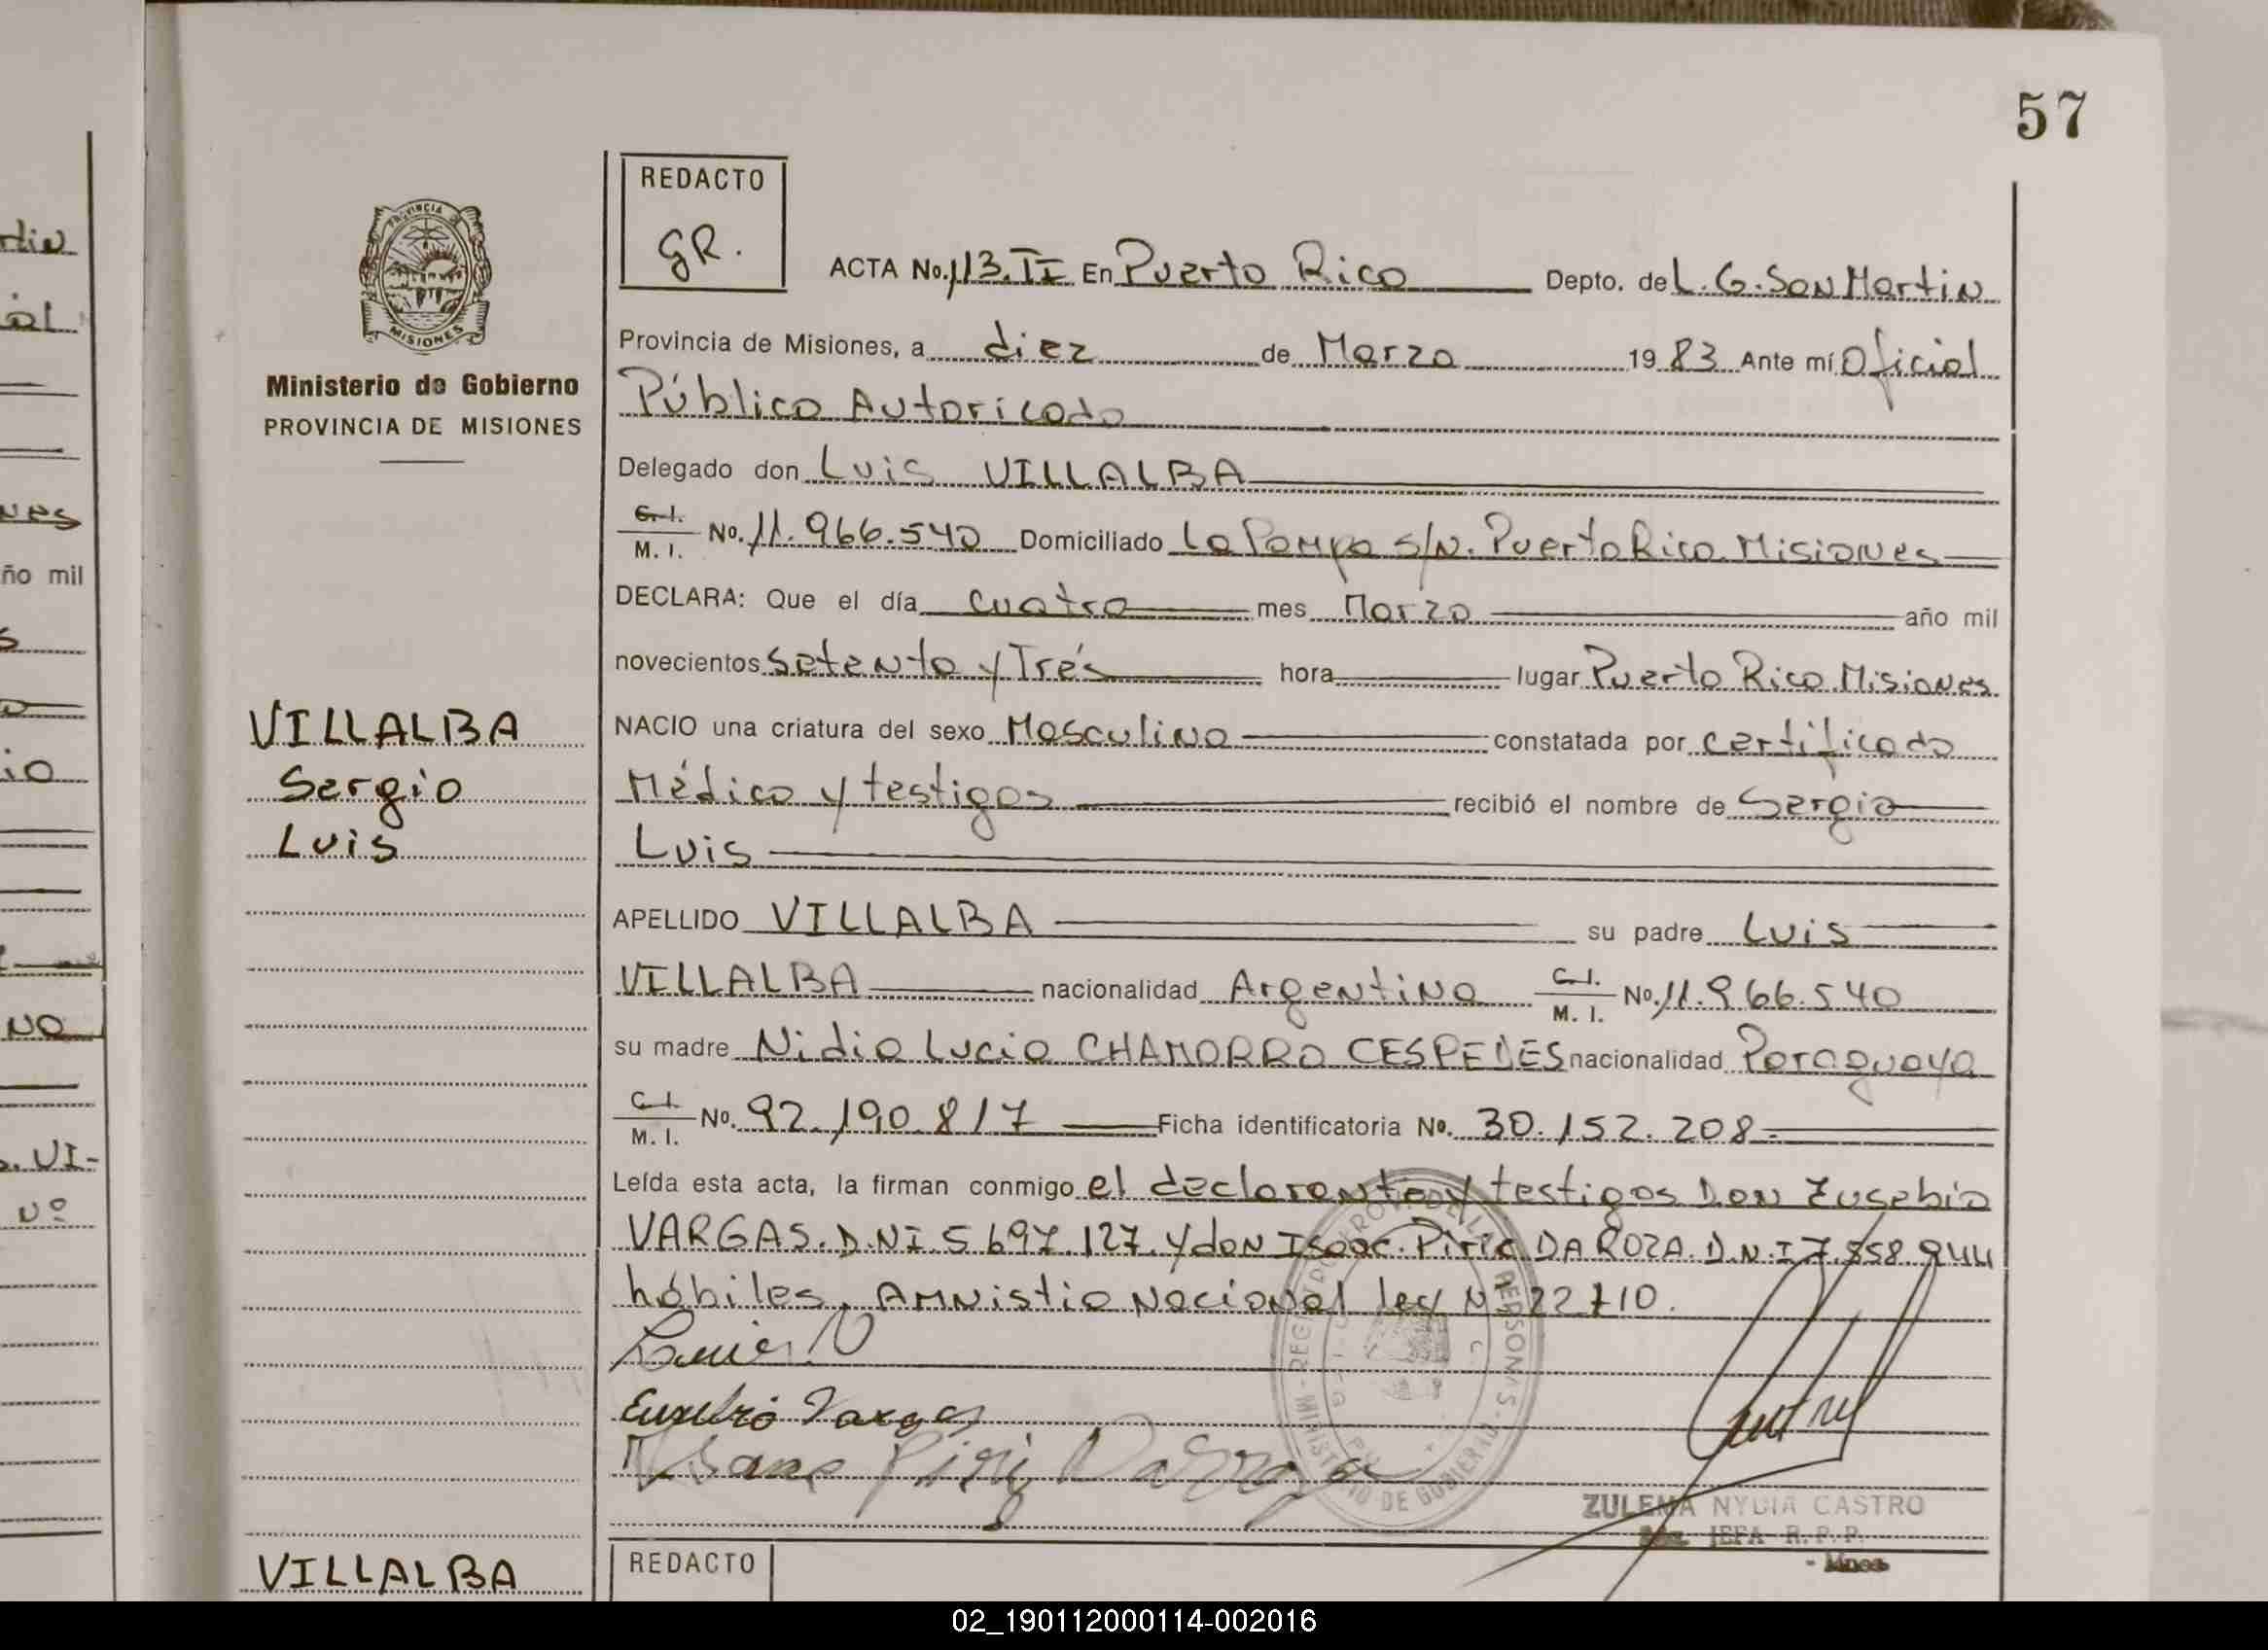 57
REDACTO
GR.
ACTA No. 113. II En Puerto Rico Depto. de L. G. San Martin
PROVINCIA
MISIONES
Provincia de Misiones, a diez de Marzo 1983 Ante mí Oficial
Ministerio de Gobierno
PROVINCIA DE MISIONES
Público Autoricado
Delegado don Luis VILLALBA
C. I.
M. I. No. 11.966.540 Domiciliado La Pampa s/N. Puerto Rico. Misiones
DECLARA: Que el día cuatro mes Marzo año mil
novecientos Setenta y Trés hora lugar Puerto Rico Misiones
VILLALBA
Sergio
Luis
NACIO una criatura del sexo Masculino constatada por certificado
Médico y testigos recibió el nombre de Sergio
Luis
APELLIDO VILLALBA su padre Luis
VILLALBA nacionalidad Argentina C. I. M. I. No. 11.966.540
su madre Nidia Lucia CHAMORRO CESPEDES nacionalidad Paraguaya
C. I.
M. I. No. 92.190.817 Ficha identificatoria No. 30.152.208.
Leída esta acta, la firman conmigo el declarante y testigos Don Eusebio
VARGAS. D.NI. 5.697.127. y don Isaac. Piris DA ROZA. D.N.I 7.558.944
hábiles. Amnistia Nacional ley Nº 22710.
Eusebio Vargas
ZULEMA NYDIA CASTRO
JEFA R. P. P.
VILLALBA
REDACTO
02_190112000114-002016